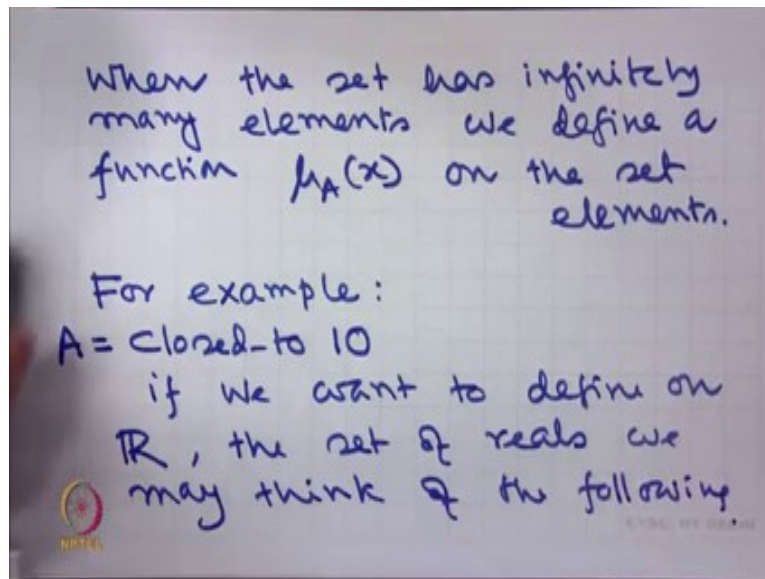 When the set has infinitely
many elements we define a
function μ_A(x) on the set
elements.
For example:
A = Closed-to 10
if we want to define on
ℝ, the set of reals we
may think of the following.
NPTEL